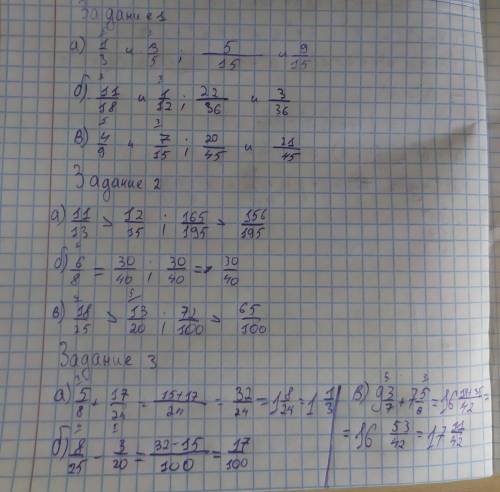 Задание 1
а) 1/3 и 3/5 ; 5/15 и 9/15
б) 11/18 и 1/12 ; 22/36 и 3/36
в) 4/9 и 7/15 ; 20/45 и 21/45
Задание 2
а) 11/13 > 12/15 ; 165/195 > 156/195
б) 6/8 = 30/40 ; 30/40 = 30/40
в) 18/25 > 13/20 ; 72/100 > 65/100
Задание 3
а) 5/8 + 17/24 = 15+17/24 = 32/24 = 1 8/24 = 1 1/3
б) 8/25 - 3/20 = 32-15/100 = 17/100
в) 9 3/7 + 7 5/6 = 16 18+35/42 =
= 16 53/42 = 17 11/42